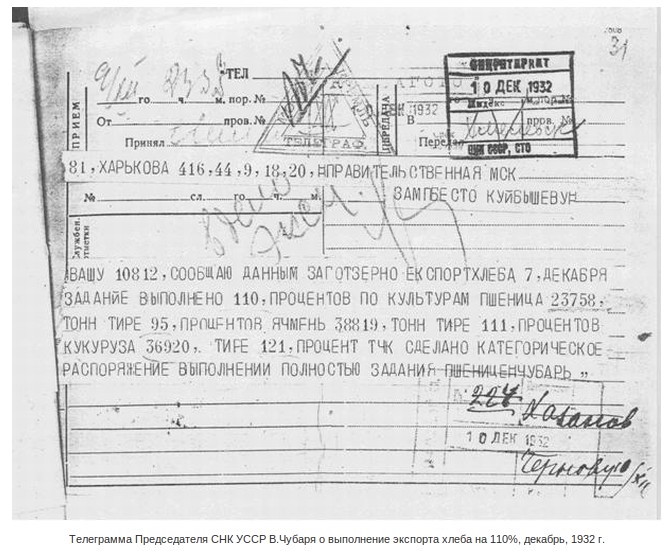 31
9/XII 23 55 ТЕЛ
СЕКРЕТАРИАТ
10 ДЕК 1932
Индекс
ПРИЕМ
го ч. м. пор. №
От пров. №
Принял
ТЕЛЕГРАФ.
ПЕРЕДАНА
ДЕК 1932
го м. пор. №
В пров. №
Передал
СНК СССР, СТО
81, ХАРЬКОВА 416,44,9,18,20,НПРАВИТЕЛЬСТВЕННАЯ МСК
ЗАМПБЕСТО КУЙБЫШЕВУН
№ сл. го ч. м.
Служебн.
отметки
ВАШУ 10812, СООБЩАЮ ДАННЫМ ЗАГОТЗЕРНО ЕКСПОРТХЛЕБА 7, ДЕКАБРЯ
ЗАДАНИЕ ВЫПОЛНЕНО 110, ПРОЦЕНТОВ ПО КУЛЬТУРАМ ПШЕНИЦА 23758,
ТОНН ТИРЕ 95, ПРОЦЕНТОВ ЯЧМЕНЬ 38819, ТОНН ТИРЕ 111, ПРОЦЕНТОВ
КУКУРУЗА 36920,. ТИРЕ 121, ПРОЦЕНТ ТЧК СДЕЛАНО КАТЕГОРИЧЕСКОЕ
РАСПОРЯЖЕНИЕ ВЫПОЛНЕНИИ ПОЛНОСТЬЮ ЗАДАНИЯ ПШЕНИЦЕНЧУБАРЬ „
10 ДЕК 1932
Телеграмма Председателя СНК УССР В.Чубаря о выполнение экспорта хлеба на 110%, декабрь, 1932 г.